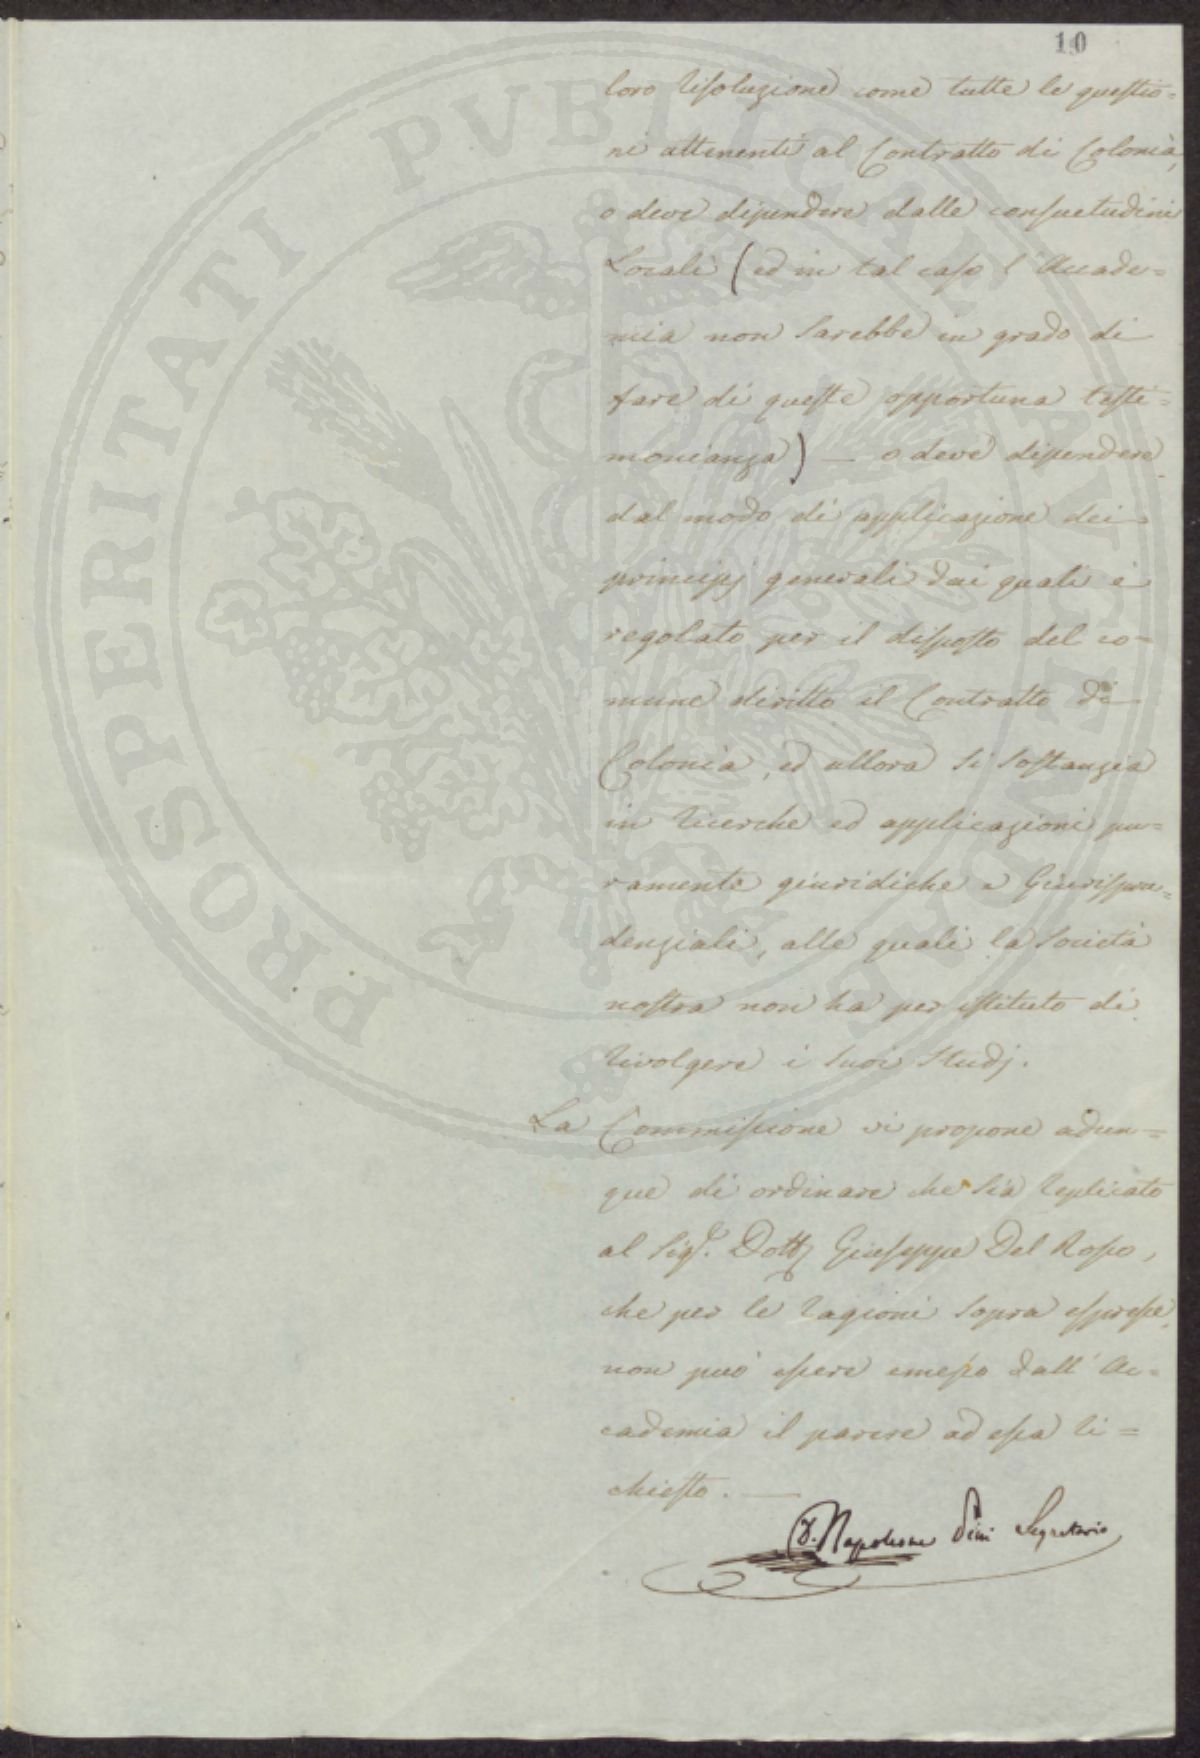 10
loro risoluzione come tutte le questio=
ni attenenti al Contratto di Colonìa,
o deve dipendere dalle consuetudini
Locali (ed in tal caso l'Accade=
mia non sarebbe in grado di
fare di queste opportuna testi=
monianza) — o deve dipendere
dal modo di applicazione dei
principj generali dai quali è
regolato per il disposto del co=
mune diritto il Contratto di
Colonìa, ed allora si sostanzia
in ricerche ed applicazioni pu=
ramente giuridiche e Giurispru=
denziali, alle quali la Società
nostra non ha per istituto di
rivolgere i suoi studj.
La Commissione vi propone adun=
que di ordinare che sia replicato
al Sigr. Dottr Giuseppe Del Rosso,
che per le ragioni sopra espresse,
non può essere emesso dall'Ac=
cademia il parere ad essa ri=
chiesto. —
Napoleone Pini Segretario
PROSPERITATI PVBLICAE AVGENDAE